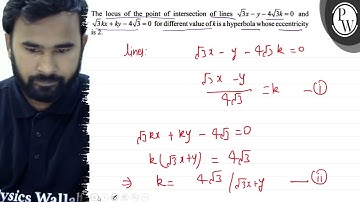 The locus of the point of intersection of lines √3x − y − 4√3k = 0 and
√3kx + ky − 4√3 = 0 for different value of k is a hyperbola whose eccentricity
is 2.
lines: √3x − y − 4√3k = 0
(√3x − y)/4√3 = k — (i)
√3kx + ky − 4√3 = 0
k(√3x + y) = 4√3
⇒ k = 4√3/√3x+y — (ii)
hysics Wallah